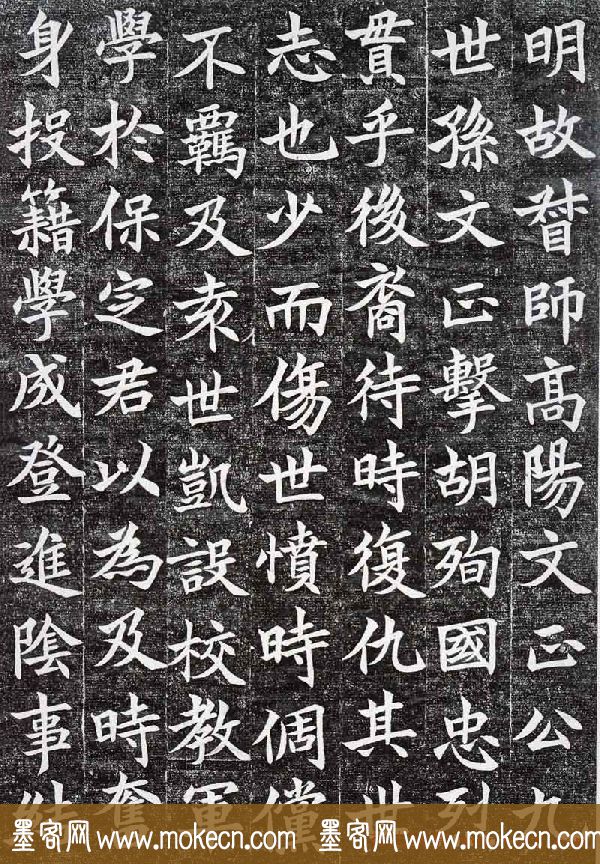 明故督師高陽文正公九
世孫文正擊胡殉國忠烈
貫乎後裔待時復仇其世
志也少而傷世憤時倜儻
不羈及袁世凱設校教軍
學於保定君以為及時奮
身投籍學成登進陰事結
墨客网 www.mokecn.com 墨客网 www.mokecn.com